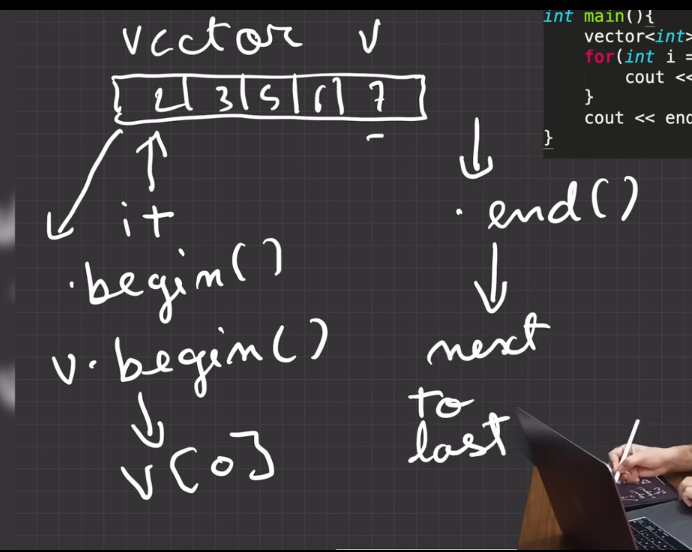 vector v
2 3 5 6 7
it
.begin()
v.begin()
v[0]
.end()
next
to
last
int main(){
vector<int>
for(int i =
cout <<
}
cout << end
}